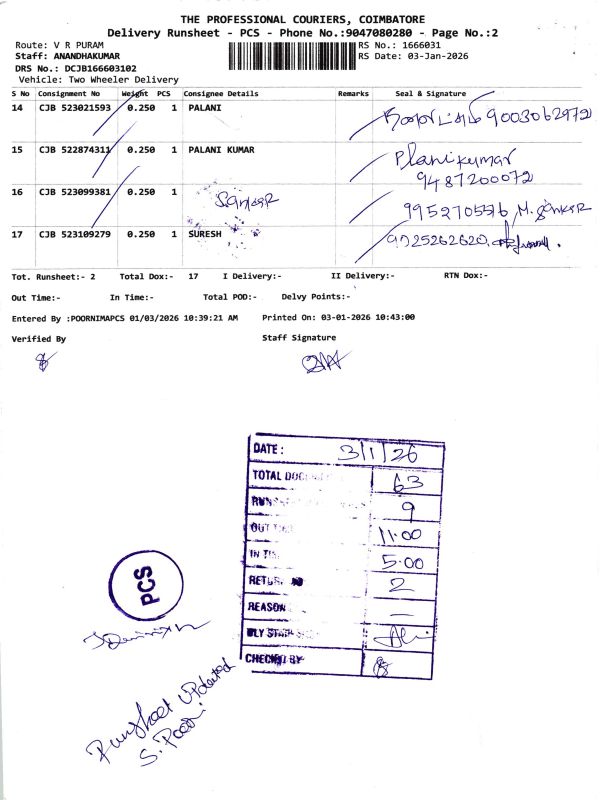 THE PROFESSIONAL COURIERS, COIMBATORE
Delivery Runsheet - PCS - Phone No.:9047080280 - Page No.:2
Route: V R PURAM
RS No.: 1666031
Staff: ANANDHAKUMAR
RS Date: 03-Jan-2026
DRS No.: DCJB166603102
Vehicle: Two Wheeler Delivery
S No Consignment No Weight PCS Consignee Details Remarks Seal & Signature
14 CJB 523021593 0.250 1 PALANI 9003062972
15 CJB 522874311 0.250 1 PALANI KUMAR Planikumar
9487200072
16 CJB 523099381 0.250 1 Sankar 9952705576 M. Sankar
17 CJB 523109279 0.250 1 SURESH 9025262620
Tot. Runsheet:- 2 Total Dox:- 17 I Delivery:- II Delivery:- RTN Dox:-
Out Time:- In Time:- Total POD:- Delvy Points:-
Entered By :POORNIMAPCS 01/03/2026 10:39:21 AM Printed On: 03-01-2026 10:43:00
Verified By Staff Signature
DATE: 3/1/26
TOTAL 63
9
OUT 11.00
IN 5.00
2
REASON —
CHECKED BY
PCS
Runsheet Updated
S. Poorni